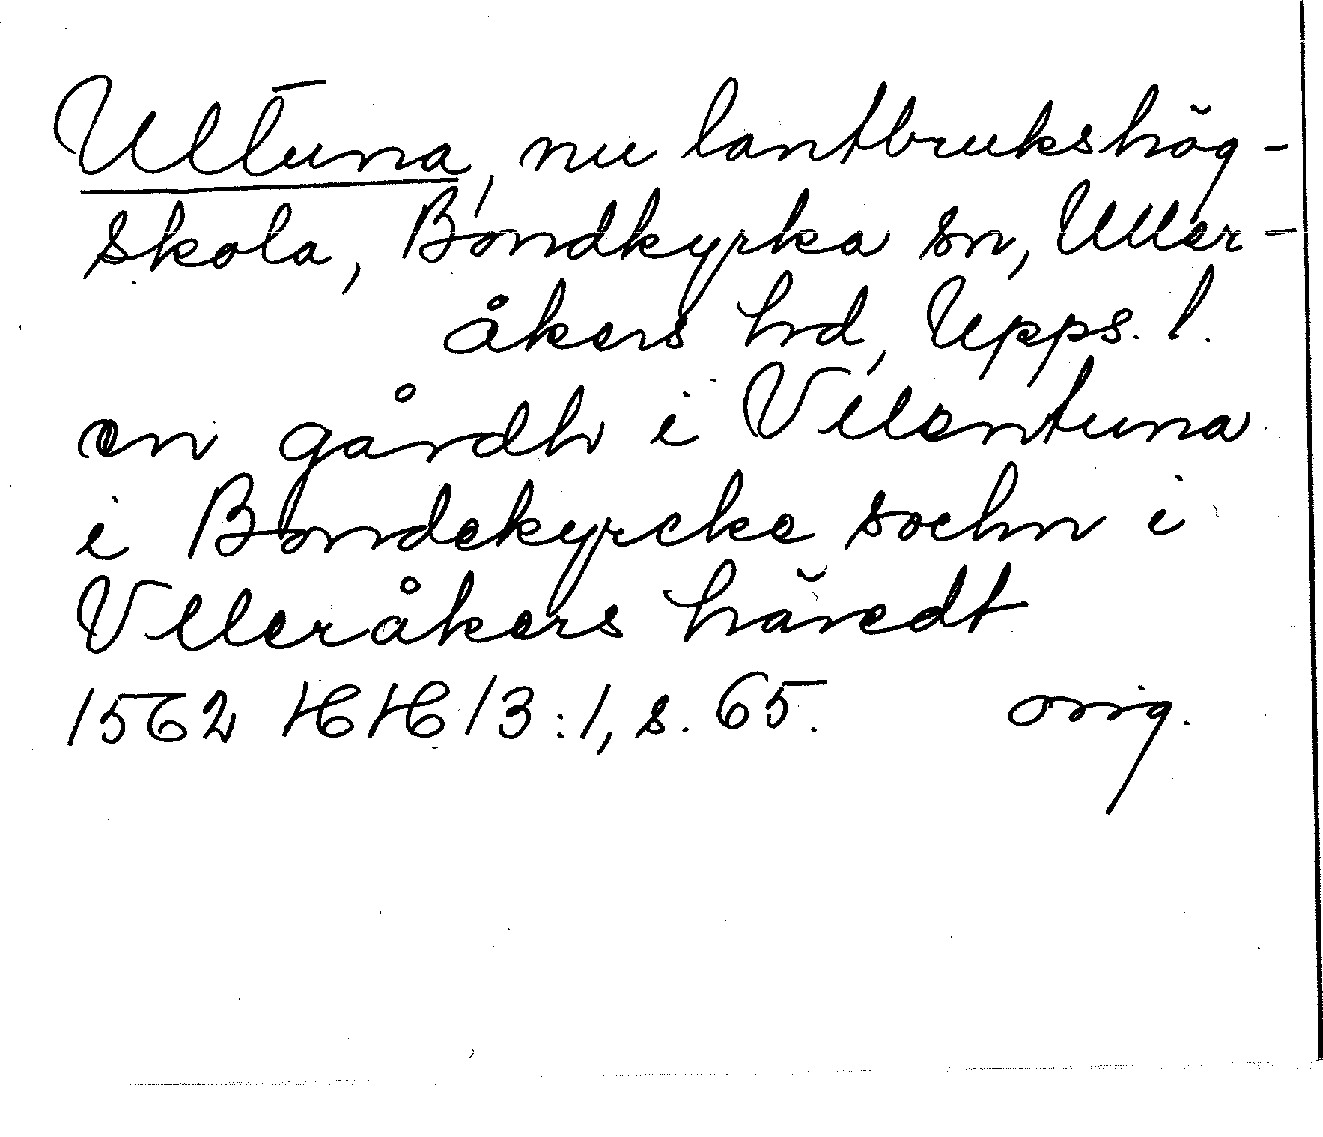 Ultuna, nu lantbrukshög-
skola, Bondkyrka sn, Uller-
åkers hd, Upps. l.
en gårdh i Vllentuna
i Bondekyrcke sochn i
Vlleråkers häredt
1562 HH 13:1, s. 65. orig.